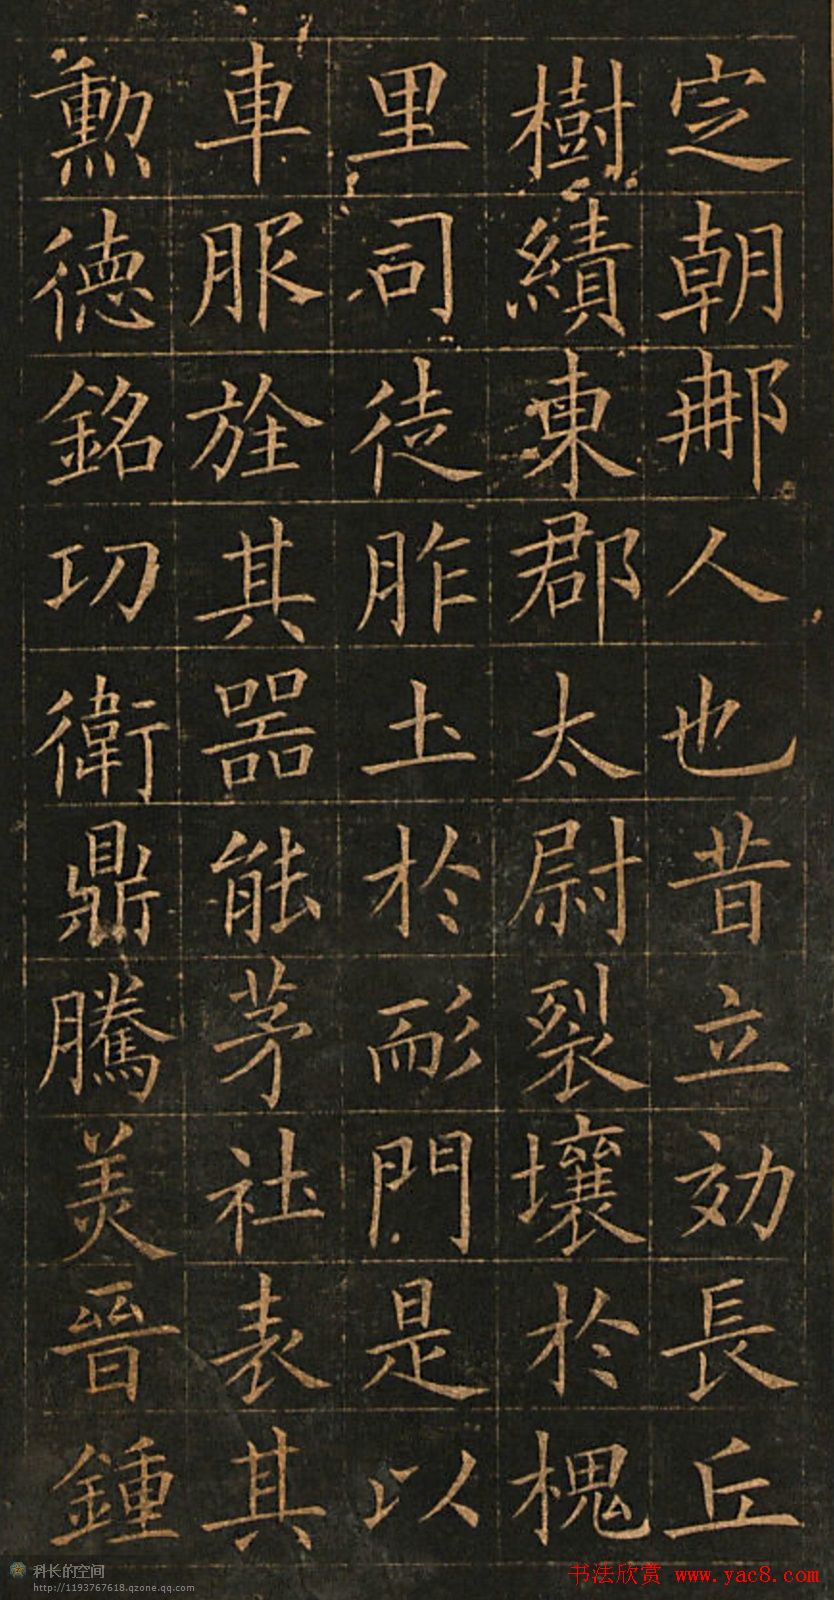 定朝𨙻人也昔立効長丘
樹績東郡太尉裂壤於槐
里司徒胙土於耏門是以
車服旌其器能茅社表其
勲德銘功衛鼎騰美晉鍾
科长的空间
http://1193767618.qzone.qq.com
书法欣赏 www.yac8.com